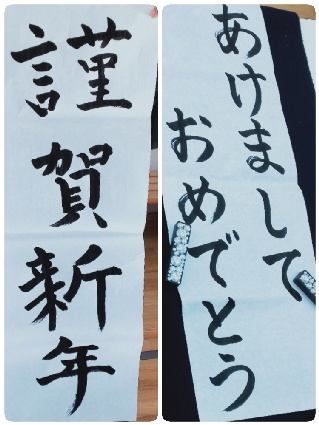 謹賀新年
あけまして
おめでとう